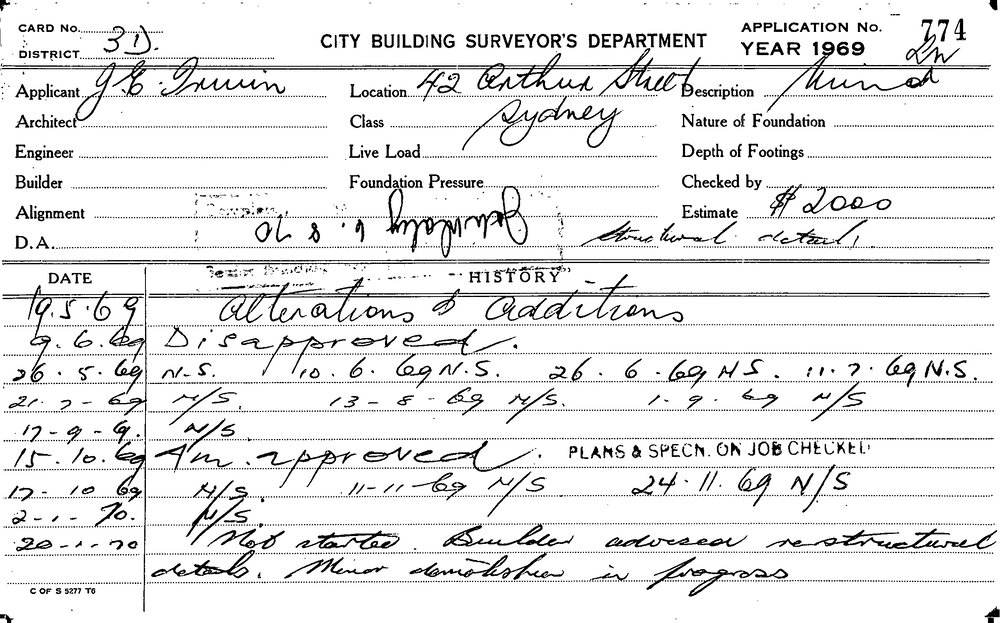 CARD No.
DISTRICT 3D.
CITY BUILDING SURVEYOR'S DEPARTMENT
APPLICATION No. 774
YEAR 1969
Applicant J. E. Irwin Location 42 Arthur Street Description Minor
Architect Class Sydney Nature of Foundation
Engineer Live Load Depth of Footings
Builder Foundation Pressure Checked by
Alignment Estimate $ 2000
D.A. 6. 8 70 structural details
DATE HISTORY
19.5.69 Alterations & additions
9.6.69 Disapproved.
26.5.69 N.S. 10.6.69 N.S. 26.6.69 N.S. 11.7.69 N.S.
21-7-69 N/S. 13-8-69 N/S. 1.9.69 N/S
17-9-69. N/S.
15.10.69 Am. approved. PLANS & SPECN. ON JOB CHECKED
17-10 69 N/S. 11-11-69 N/S 24.11.69 N/S
2-1-70. N/S.
20-1-70 Not started. Builder advised re structural
details. Minor demolition in progress
C OF S 5277 T6